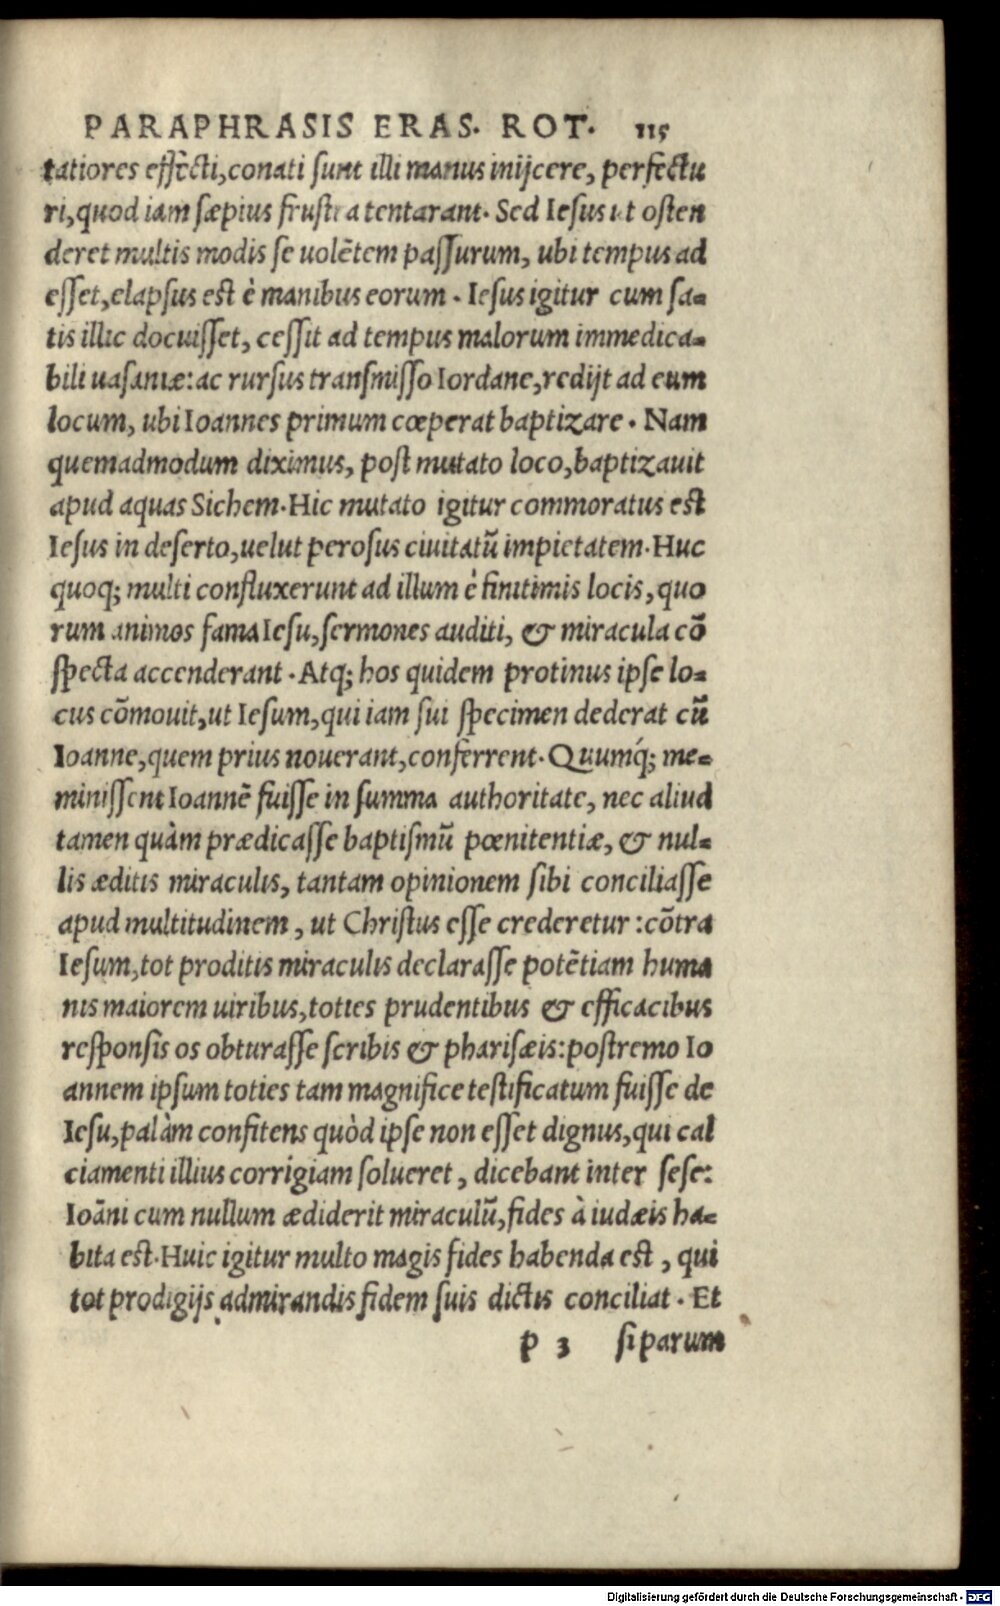 PARAPHRASIS ERAS. ROT. 115
tatiores effecti, conati sunt illi manus inijcere, perfectu
ri, quod iam sæpius frustra tentarant. Sed Iesus ut osten
deret multis modis se uolẽtem passurum, ubi tempus ad
esset, elapsus est è manibus eorum. Iesus igitur cum sa-
tis illic docuisset, cessit ad tempus malorum immedica-
bili uasaniæ: ac rursus transmisso Iordane, redijt ad eum
locum, ubi Ioannes primum cœperat baptizare. Nam
quemadmodum diximus, post mutato loco, baptizauit
apud aquas Sichem. Hic mutato igitur commoratus est
Iesus in deserto, uelut perosus ciuitatũ impietatem. Huc
quoq; multi confluxerunt ad illum è finitimis locis, quo
rum animos fama Iesu, sermones auditi, & miracula cõ
specta accenderant. Atq; hos quidem protinus ipse lo-
cus cõmouit, ut Iesum, qui iam sui specimen dederat cũ
Ioanne, quem prius nouerant, conferrent. Quumq́; me-
minissent Ioannẽ fuisse in summa authoritate, nec aliud
tamen quàm prædicasse baptismũ pœnitentiæ, & nul-
lis æditis miraculis, tantam opinionem sibi conciliasse
apud multitudinem, ut Christus esse crederetur: cõtra
Iesum, tot proditis miraculis declarasse potẽtiam huma
nis maiorem uiribus, toties prudentibus & efficacibus
responsis os obturasse scribis & pharisæis: postremo Io
annem ipsum toties tam magnifice testificatum fuisse de
Iesu, palàm confitens quòd ipse non esset dignus, qui cal
ciamenti illius corrigiam solueret, dicebant inter sese:
Ioãni cum nullum ædiderit miraculũ, fides à iudæis ha-
bita est. Huic igitur multo magis fides habenda est, qui
tot prodigijs admirandis fidem suis dictis conciliat. Et
p 3 si parum
Digitalisierung gefördert durch die Deutsche Forschungsgemeinschaft - DFG